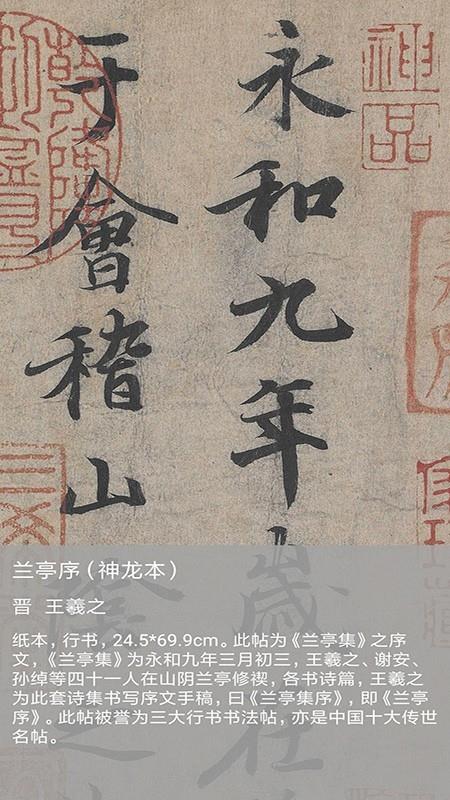 神品
永和九年歲在
于會稽山陰之
兰亭序（神龙本）
晋 王羲之
纸本，行书，24.5*69.9cm。此帖为《兰亭集》之序
文，《兰亭集》为永和九年三月初三，王羲之、谢安、
孙绰等四十一人在山阴兰亭修禊，各书诗篇，王羲之
为此套诗集书写序文手稿，曰《兰亭集序》，即《兰亭
序》。此帖被誉为三大行书书法帖，亦是中国十大传世
名帖。